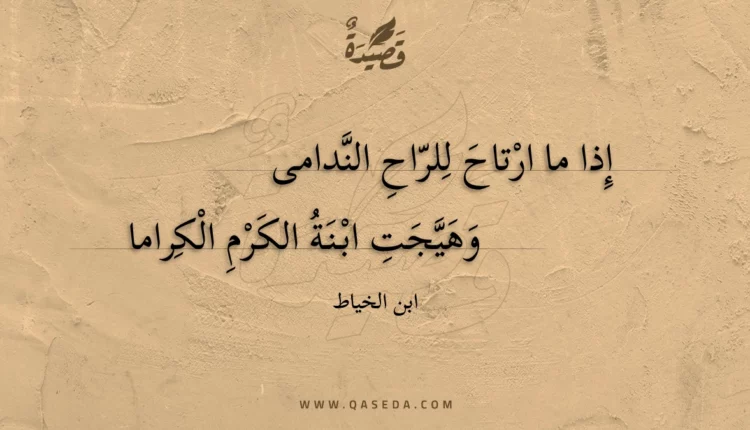 قَصِيدَةٌ
إِذا ما ارْتاحَ لِلرّاحِ النَّدامى
وَهَيَّجَتِ ابْنَةُ الكَرْمِ الْكِراما
ابن الخياط
WWW.QASEDA.COM